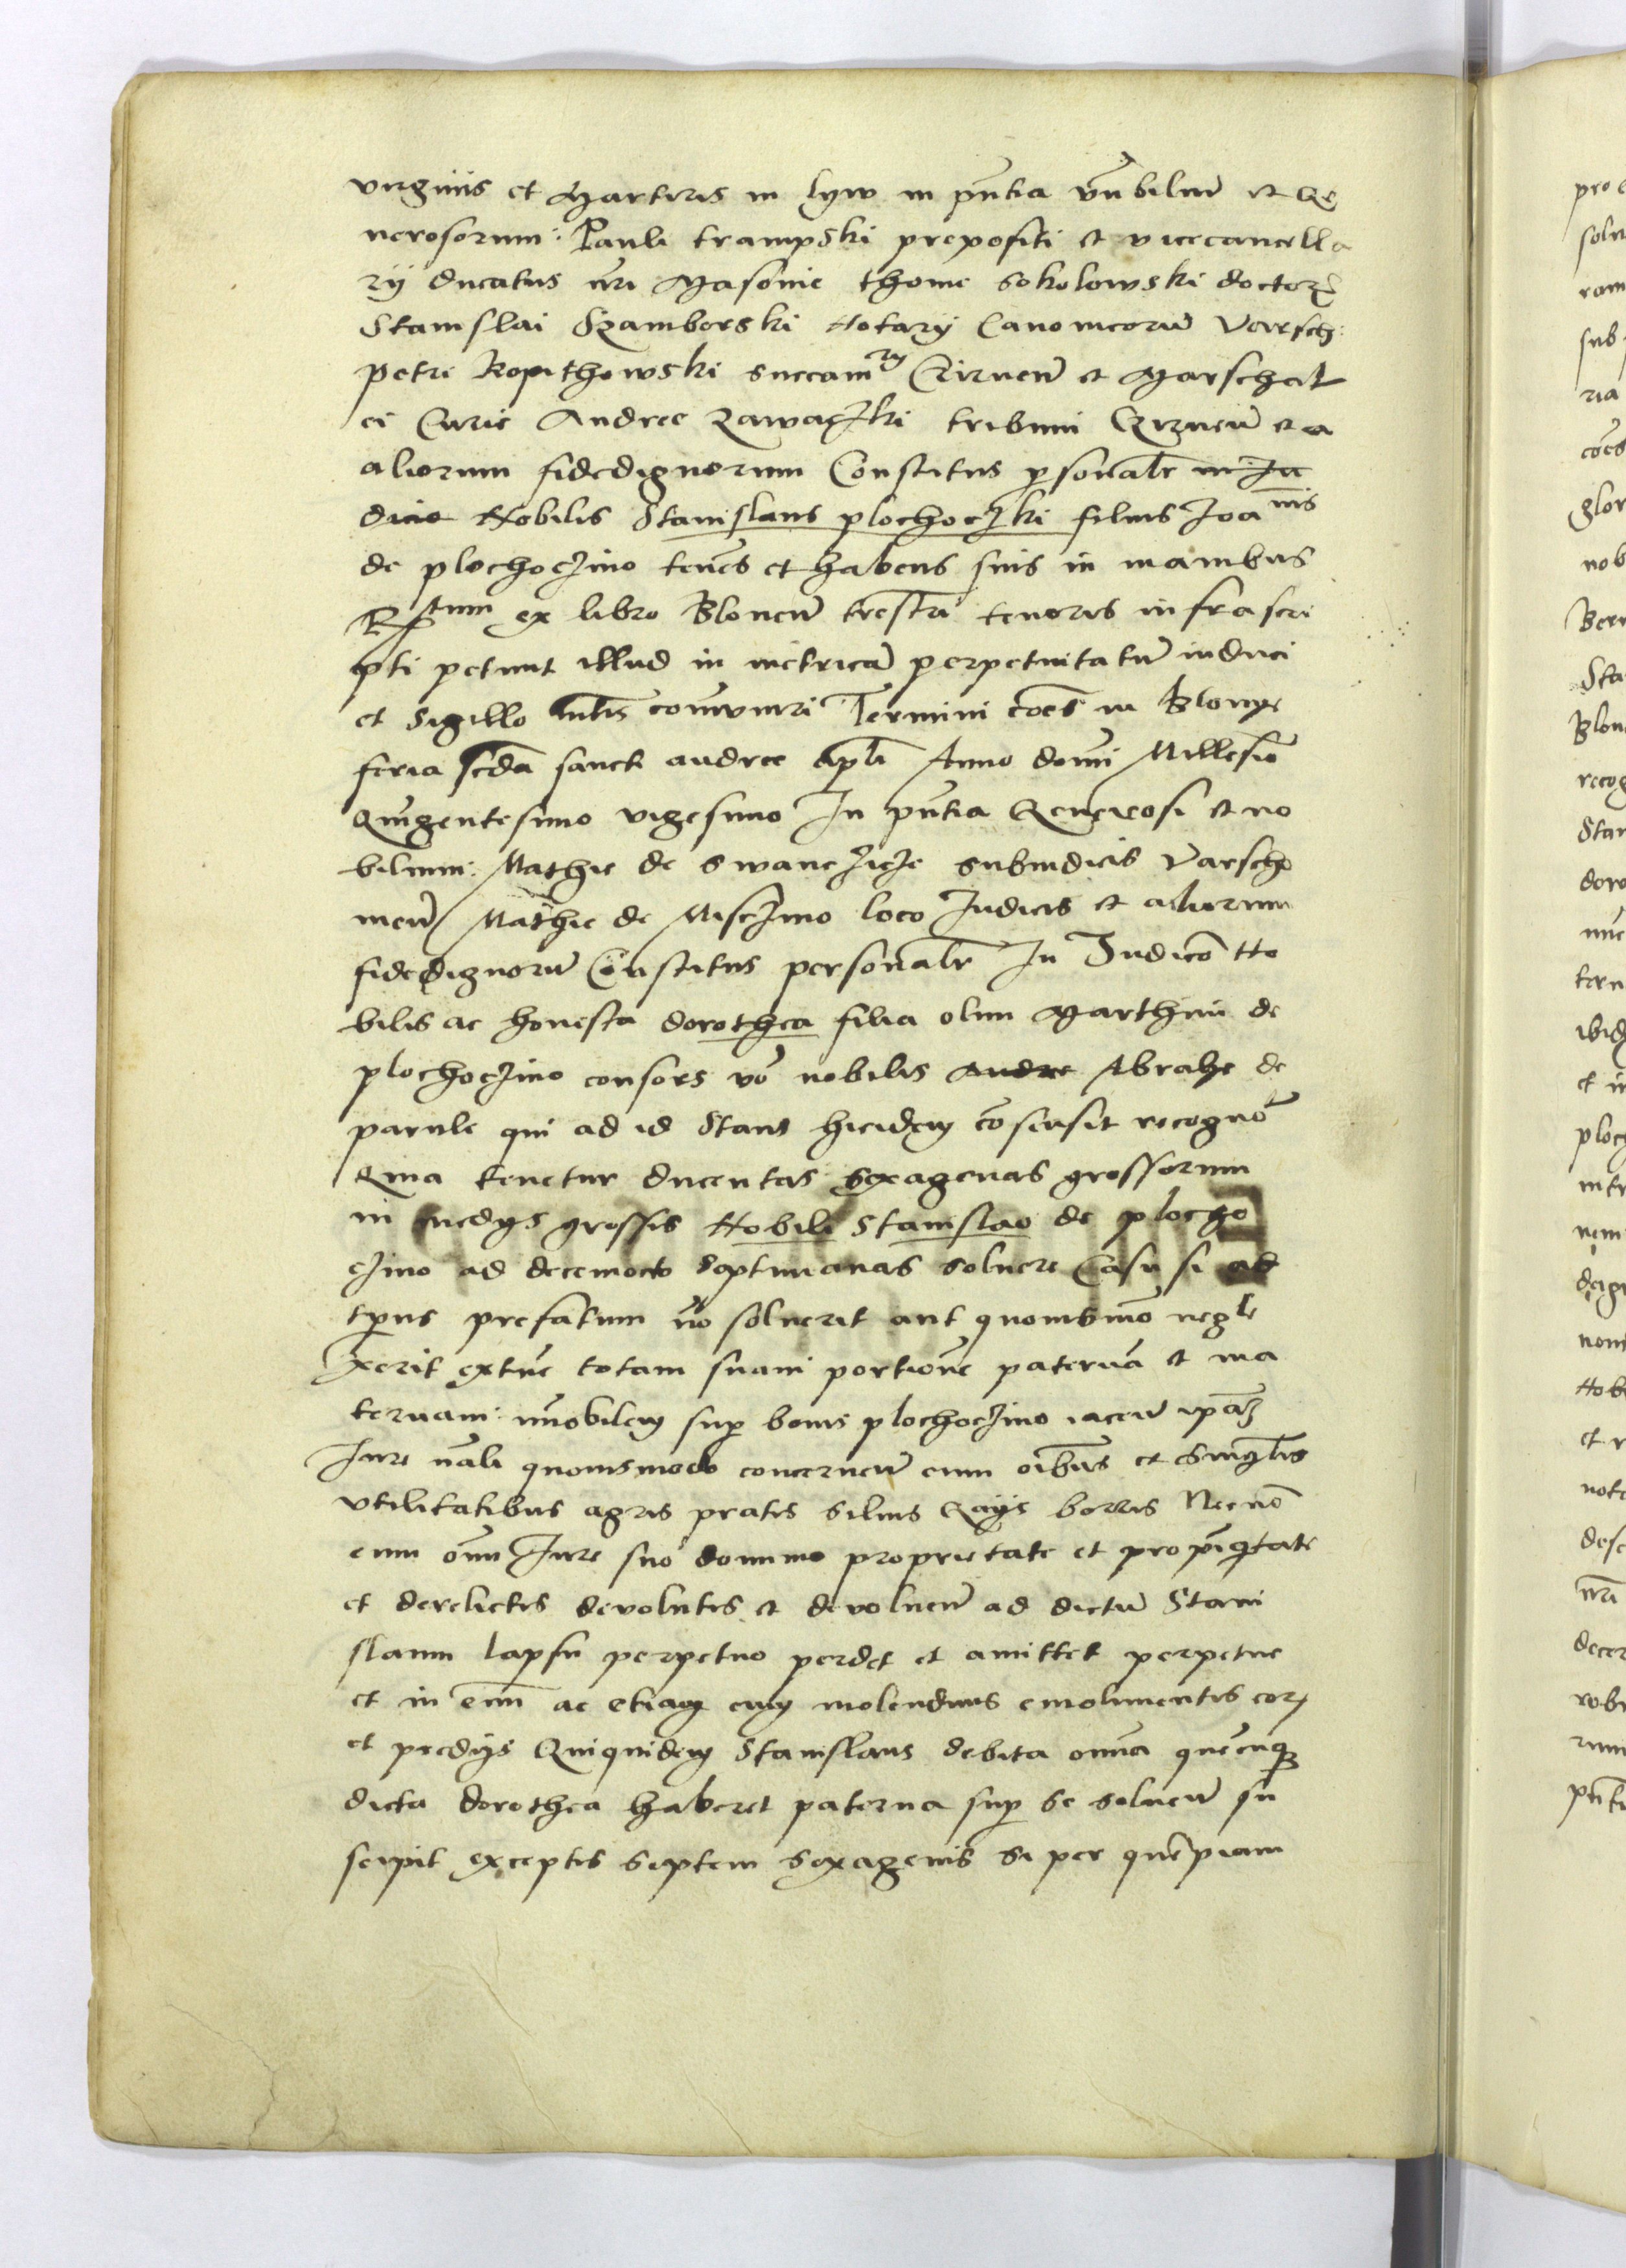 virginis et Martiris in lyw in pñtia vñbiliũ et Ge
nerosorum: Pauli trampski prepositi et vicecancella
rij ducatus nr̃i Masovie thome Sokolowski doctor
Stanislai Szamborski Notarij Canonicorũ Varsch:
petri Kopithowski succamrij Czirneñ et Marschal
ci Curie Andree Zawaczki tribuni Czirneñ et a
aliorum fidedignorum Constitus psonalr in Iu
dicio Nobilis Stanislaus plochoczki filius Joannis
de plochoczino teñes et habens suis in manibus
Rptum ex libro Bloneñ trestri tenoris infrascri
pti petiuit illud in metricã perpetuitatũ induci
et sigillo communiri Termini cões in Blonye
feria scda sancti andree apli Anno domi Millesiõ
Quĩgentesimo vigesimo In pñtia Generosi et no
bilium: Mathie de Swanczicze subiudicis Varscho
uieñ Mathie de Misczino loco Judicis et aliorum
fidedignorũ Constitus personalr In Judicõ No
bilis ac honesta dorothea filia olim Marthini de
plochoczino consors võ nobilis Andre Abrahe de
parule qui ad id Stans hicidem cõsensit recognõ
Quia tenetur ducentas sexagenas grossorum
in medys grossis Nobili Stanislao de plocho
czino ad decemocto Septimanas soluere Casu si ad
tpus prefatum nõ soluerit aut quouismõ negle
xerit extũc totam suam portionẽ paternã et ma
ternam immobilem sup bonis plochoczino iaceñ ipaz
Jure nãli quouismodo concerneñ cum oĩbus et singlis
vtilitatibus agris pratis siluis Gays borris Necnõ
cum omni Jure suo dominio proprietate et propĩqtate
et derelictis deuolutis et deuolueñ ad dictũ Stani
slaum lapsu perpetuo perdet et amittet perpetue
et in eũm ac etiam cum molendinis emolimentis eorz
et predys Quiquidem Stanislaus debita omnia quecũqz
dicta dorothea haberet paterna sup se solueñ su
scepit exceptis septem sexagenis si per quẽpiam